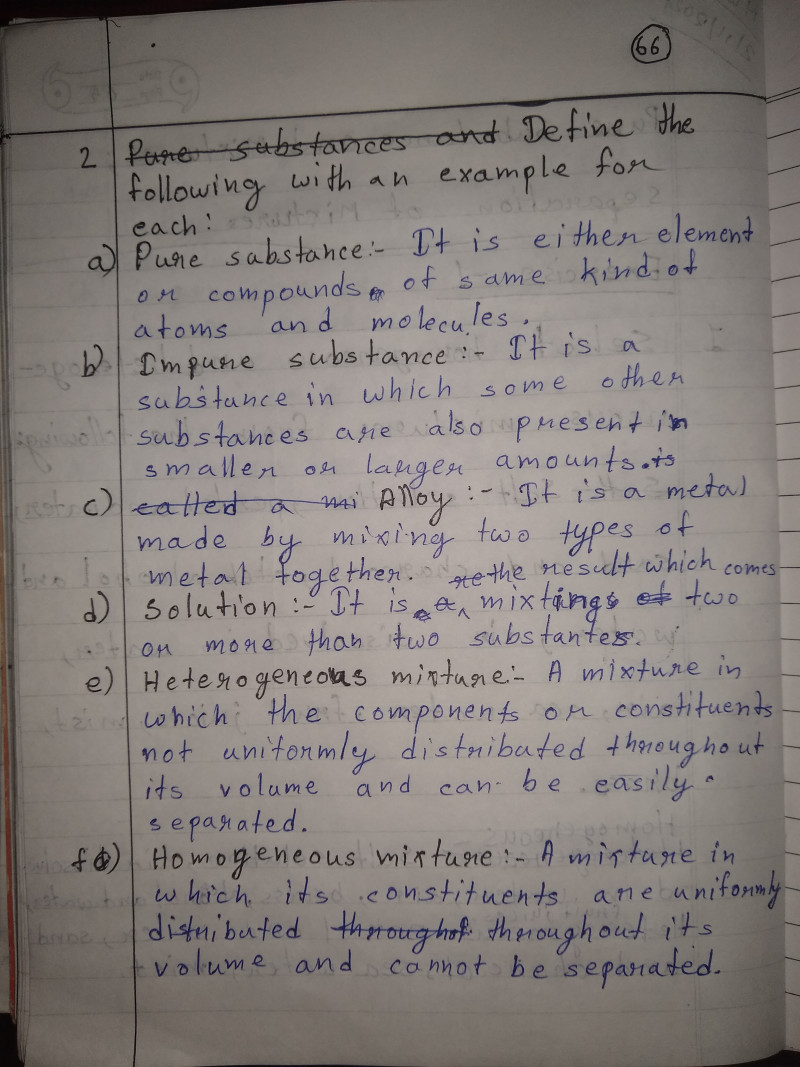 66
2 Pure substances and Define the
following with an example for
each:
a) Pure substance:- It is either element
or compounds of same kind of
atoms and molecules.
b) Impure substance:- It is a
substance in which some other
substances are also present in
smaller or larger amounts. is
c) called a mi Alloy:- It is a metal
made by mixing two types of
metal together.
the result which comes
d) Solution:- It is a mixtings of two
or more than two substantes.
e) Heterogeneous mixture:- A mixture in
which the components or constituents
not uniformly distributed throughout
its volume and can be easily
separated.
f) Homogeneous mixture:- A mixture in
which its constituents are uniformly
distributed throughot throughout its
volume and cannot be separated.